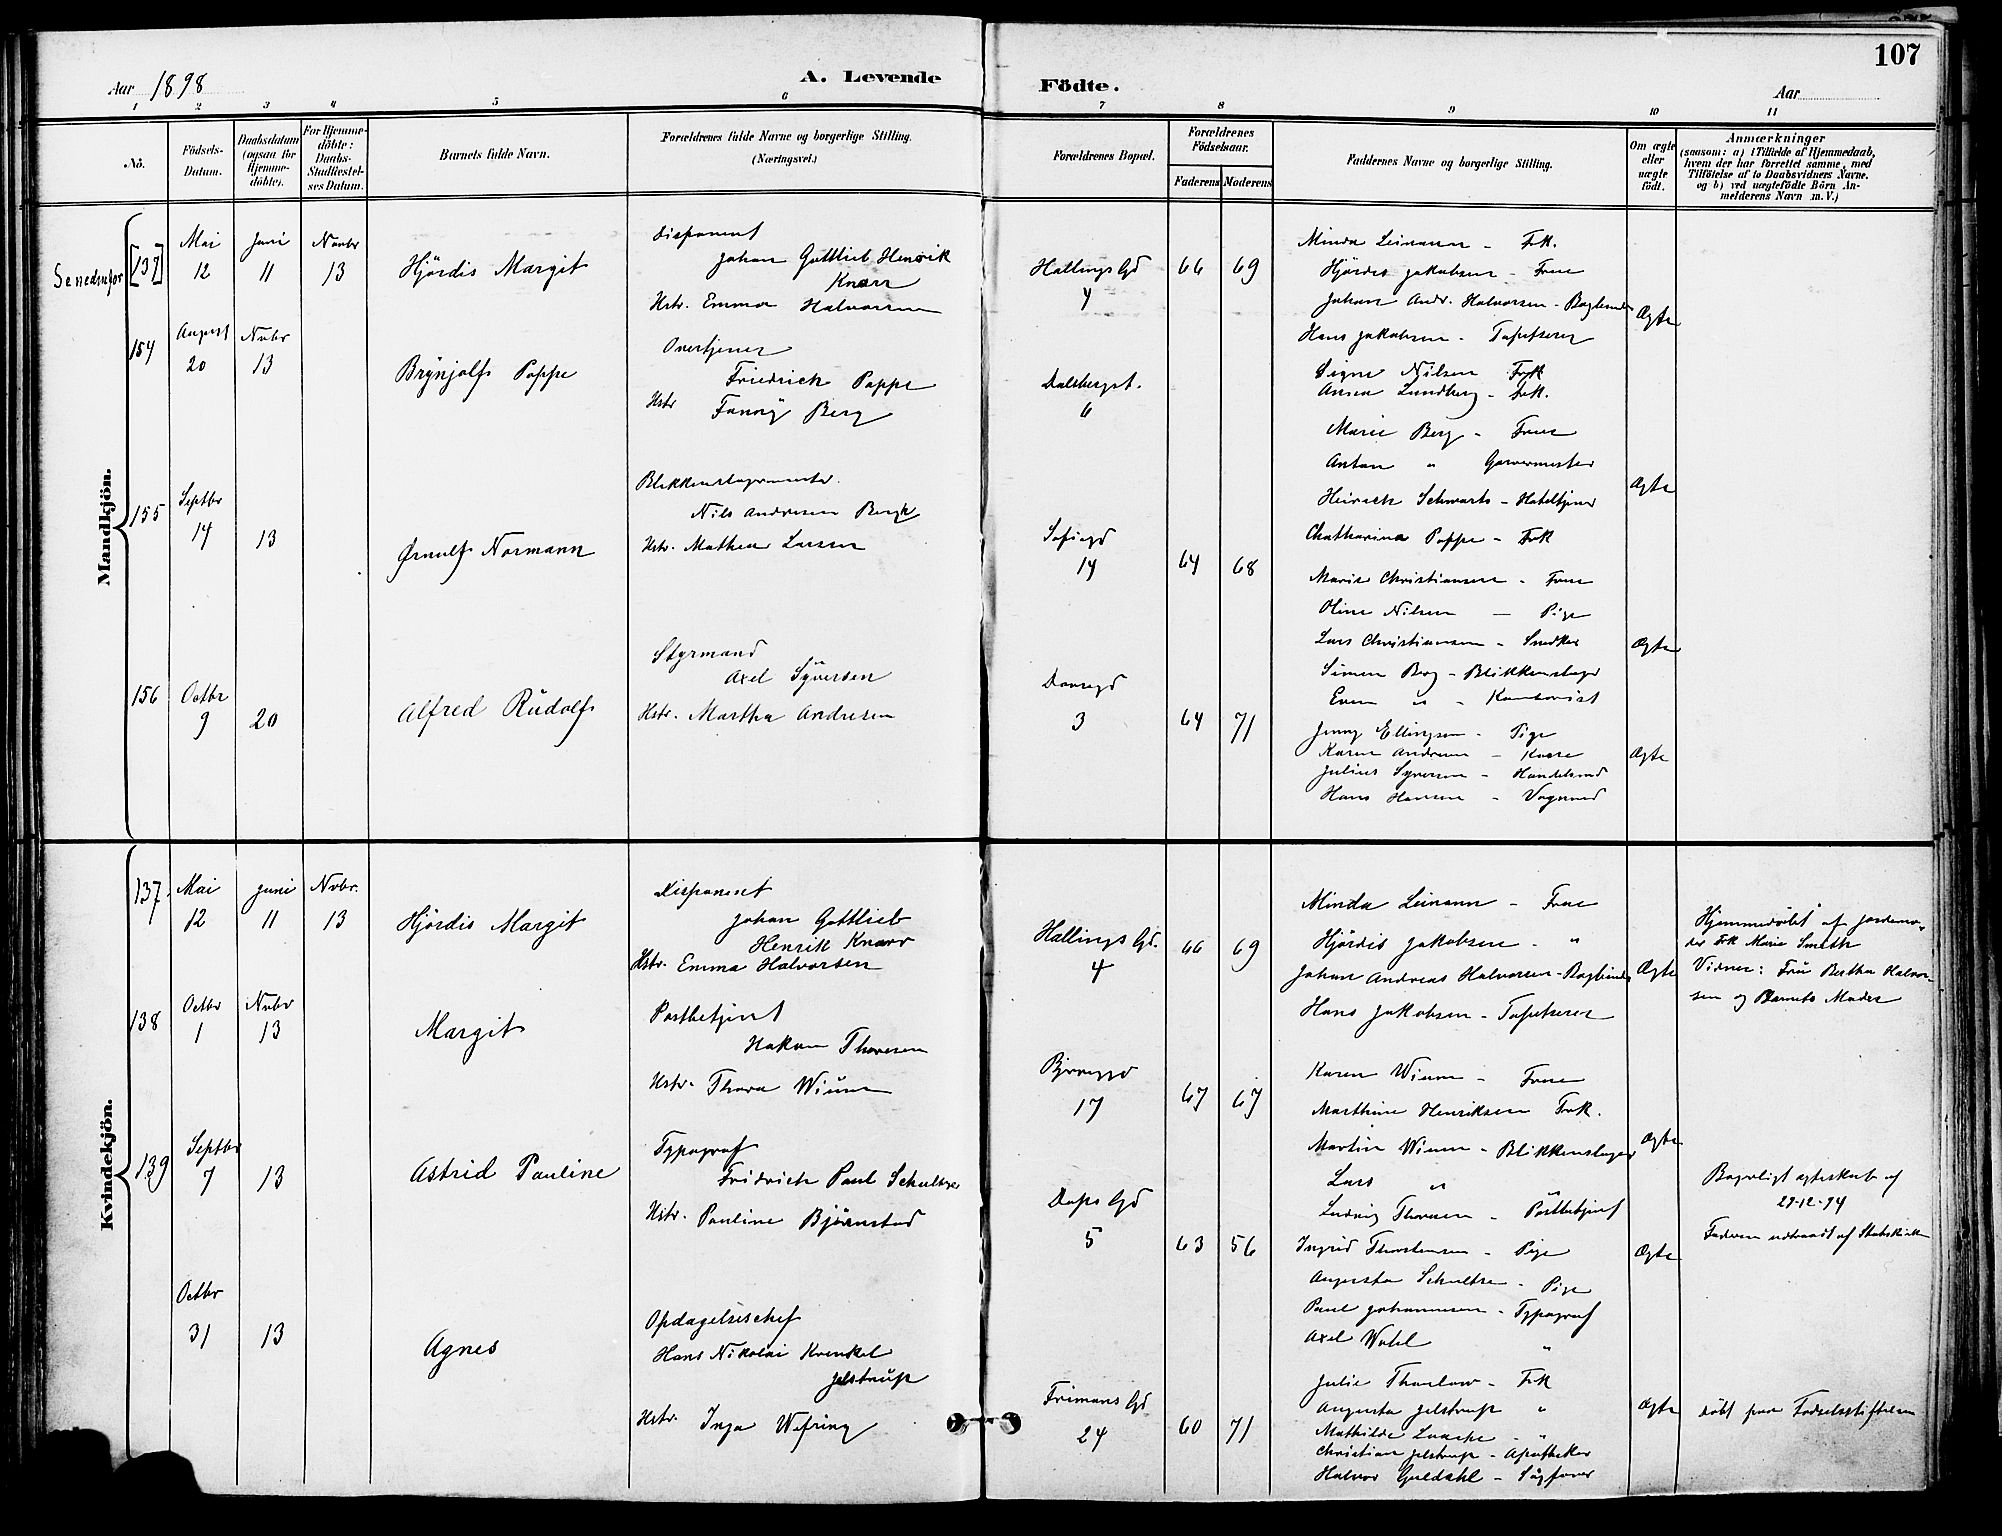 107
Aar 1898
A. Levende Födte.
Aar
1 2 3 4 5 6 7 8 9 10 11
Nô.
Födsels-Datum.
Daabsdatum (ogsaa for Hjemme-döbte).
For Hjemme-döbte: Daabs-Stadfæstel-ses Datum.
Barnets fulde Navn.
Forældrenes fulde Navne og borgerlige Stilling. (Næringsvei.)
Forældrenes Bopæl.
Forældrenes Födselsaar.
Faderens Moderens
Faddernes Navne og borgerlige Stilling.
Om ægte eller uægte födt.
Anmærkninger
(saasom: a) i Tilfælde af Hjemmedaab,
hvem der har forrettet samme, med
Tilföielse af to Daabsvidners Navne.
og b) ved uægtefödte Börn An-
melderens Navn m. V.)
Mandkjön.
Se nedenfor [137] Mai 12 Juni 11 Novbr 13
Hjördis Margit
Disponent
Johan Gottlieb Henrik
Knarr
Hstr. Emma Halvorsen
Hallings Gd 4
66 69
Minda Leinann - Frk.
Hjördis Jakobsen - Frue
Johan Andr. Halvorsen - Bogbinder
Hans Jakobsen - Tapetserer
Ægte
154 August 20 Nvbr 13
Brynjolf Poppe
Overtjener
Friedrich Poppe
Hstr Fanny Berg
Dalsbergst. 6
Signe Nilsen Frk
Anna Lundberg - Frk.
Marie Berg - Frue
Anton " Garvermester
Heinrich Schwarts - Hoteltjener
Chatharina Poppe - Frk
Ægte
155 Septbr 14 13
Ørnulf Normann
Blikkenslagermester
Nils Andresen Bergh
Hstr. Mathea Larsen
Sofiegd 14
64 68
Marie Christiansen - Frue
Oline Nilsen - Pige
Lars Christiansen - Snedker
Simen Berg - Blikkenslager
Even " - Kontorist
Ægte
156 Octbr 9 20
Alfred Rudolf
Styrmand
Axel Syversen
Hstr. Martha Andresen
3
64 71
Jenny Ellingsen - Pige
Karen Andresen - Kone
Julius Syversen - Handelsmd
Hans Hansen - Vognmd
Ægte
Kvindekjön.
137. Mai 12 Juni 11 Nvbr. 13
Hjördis Margit
Disponent
Johan Gottlieb
Henrik Knarr
Hstr. Emma Halvorsen
Hallings Gd. 4
66 69
Minda Leinann - Frue
Hjördis Jakobsen - "
Johan Andreas Halvorsen - Bogbinder
Hans Jakobsen - Tapetserer
Ægte
Hjemmedøbt af Jordemo-
der Frk Marie Smith
Vidner: Fru Bertha Halvor-
sen og Barnets Moder
138 Octbr 1 Nvbr 13
Margit
Postbetjent
Hakon Thoresen
Hstr. Thora Wium
17
67 67
Karen Wium - Frue
Marthine Henriksen Frk.
Martin Wium - Blikkenslager
Lars "
Ludvig Thoresen - Postbetjent
Ægte
139 Septbr 7 13
Astrid Pauline
Typograf
Fridrich Paul Schultze
Hstr. Pauline Björnstad
Dops Gd 5
63 56
Ingrid Thorstensen - Pige
Augusta Schultze - Pige
Paul Johannesen - Typograf
Axel "
Ægte
Borgerligt ægteskab af
29-12-94
Faderen udtraadt af Statskirken
Octbr 31 13
Agnes
Opdagelseschef
Hans Nikolai Krenkel
Jelstrup
Hstr. Inga Wefring
Frimans Gd 24
60 71
Julie Thaulow - Frk
Augusta Jelstrup "
Mathilde Laache - "
Christian Jelstrup - Apotheker
Halvor Guldahl - Sagförer
Ægte
døbt paa Fødselsstiftelsen